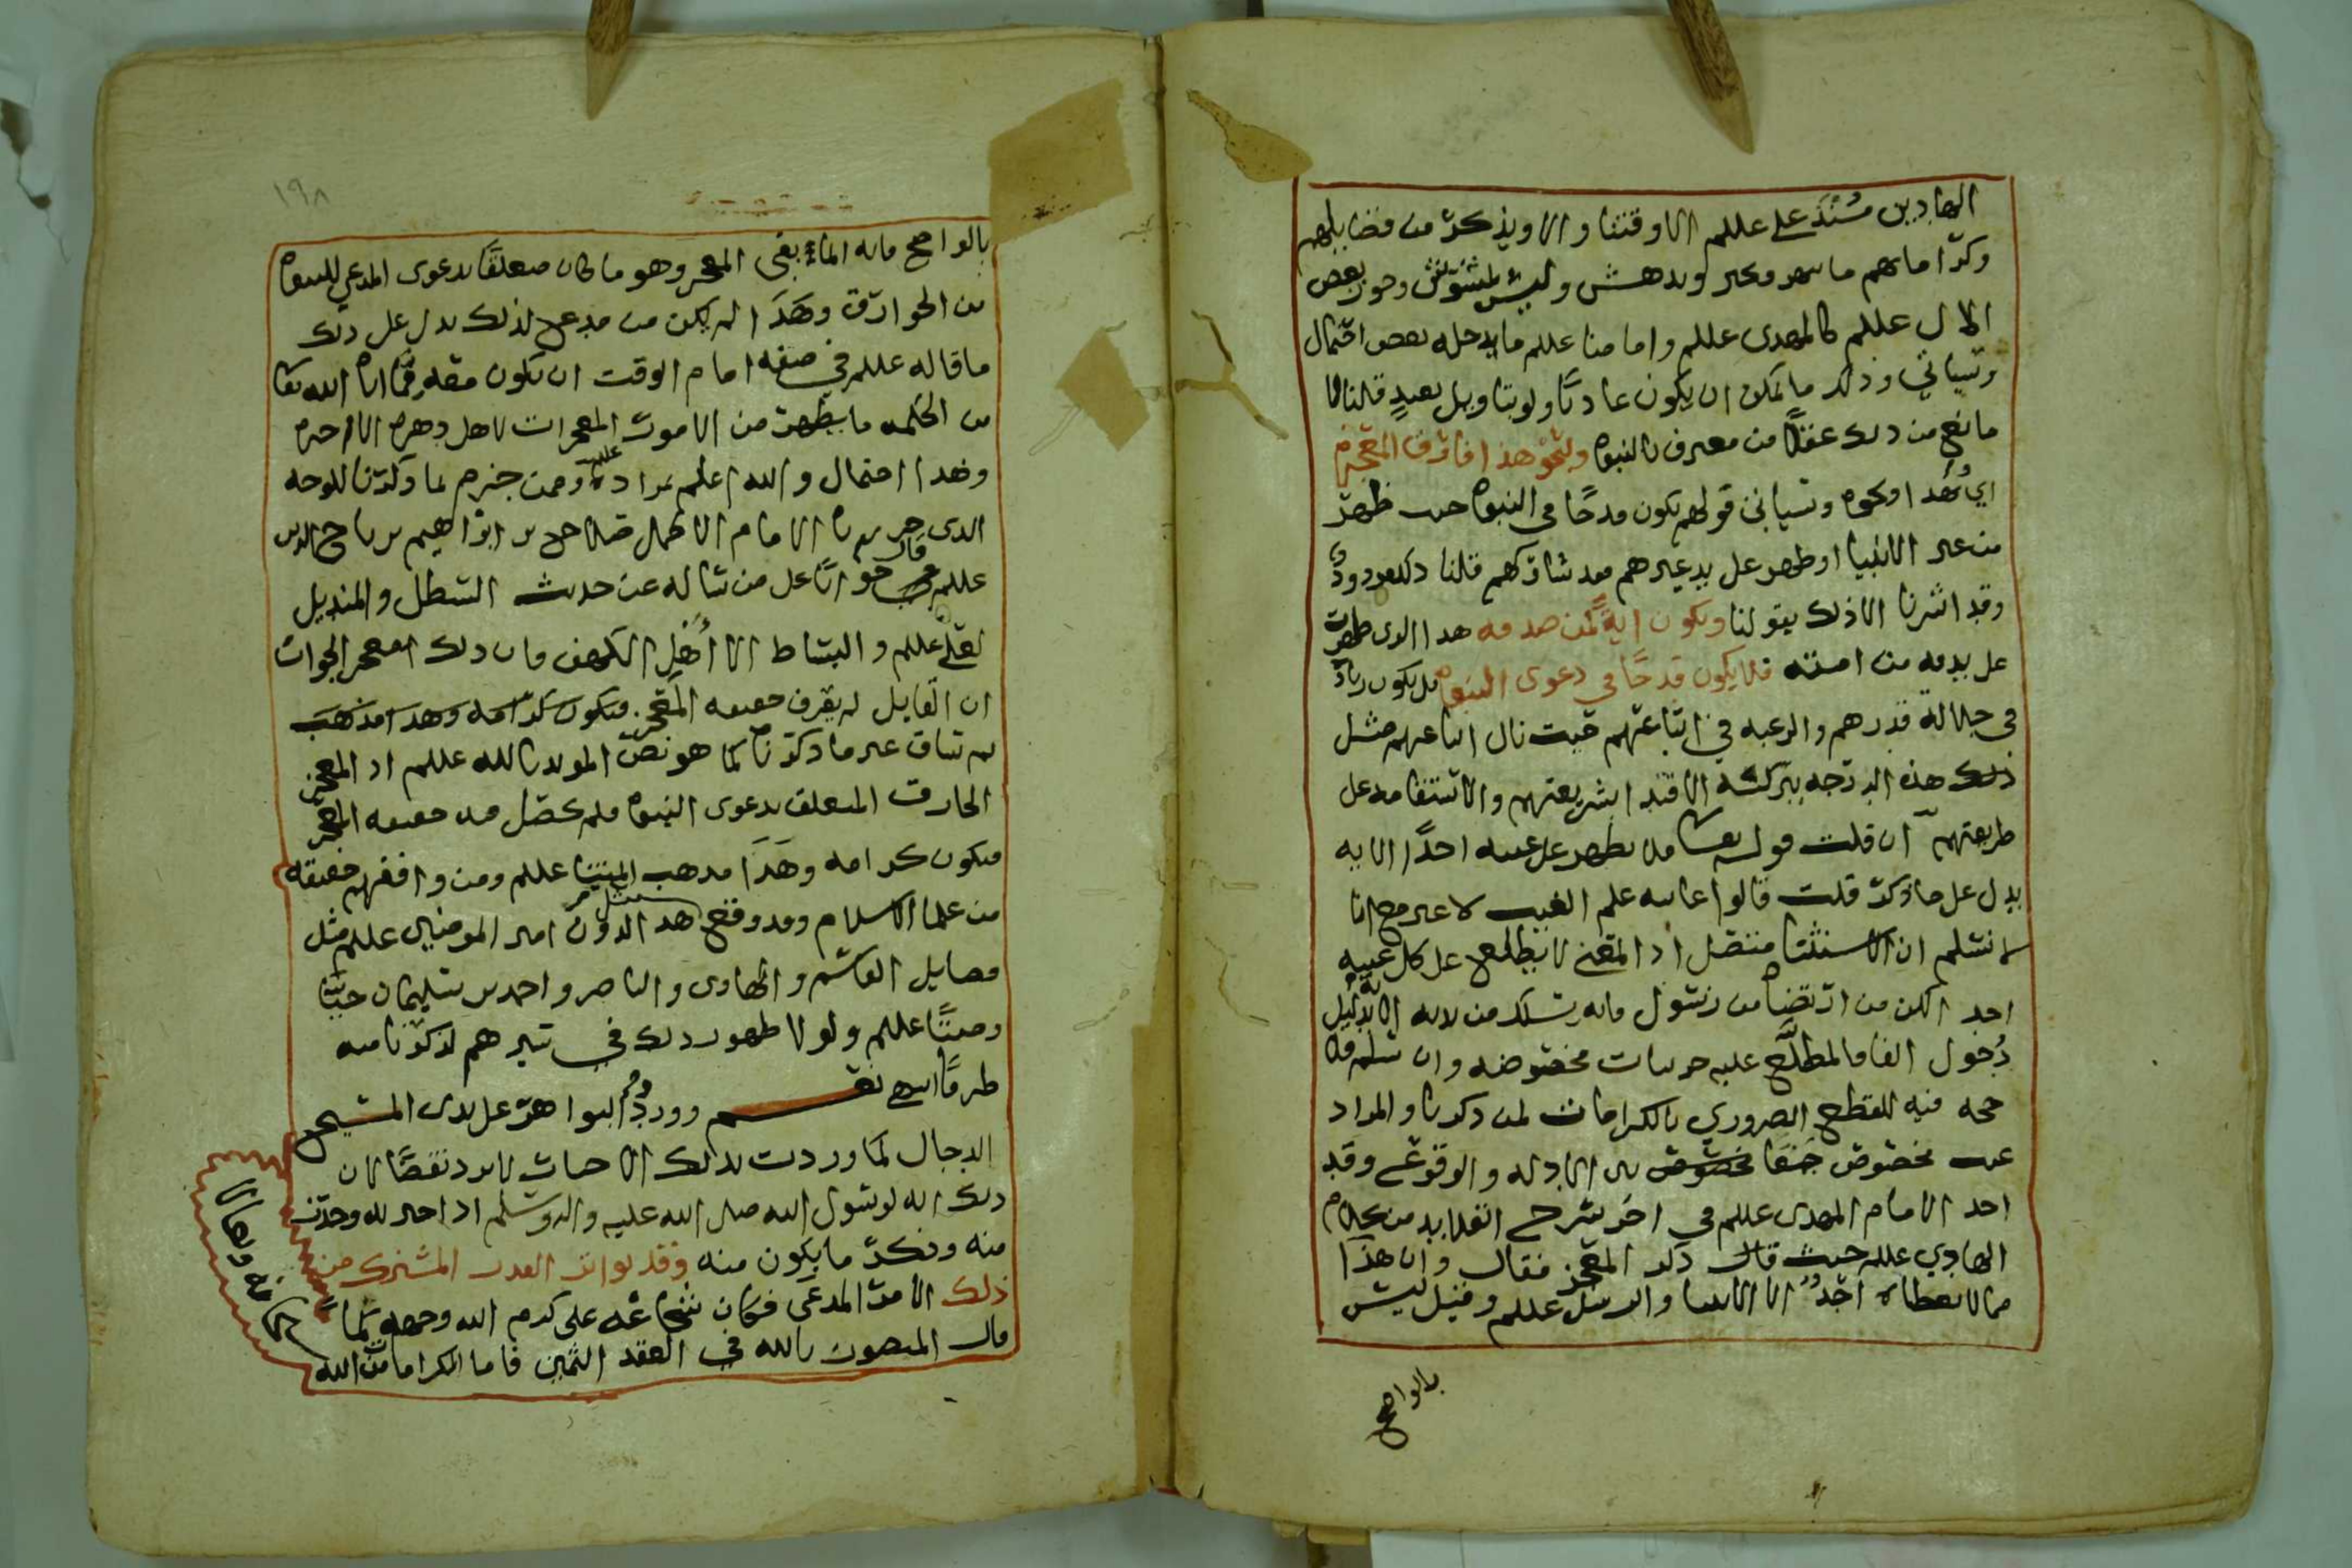 الهادين مسند علي عللم الا وقتنا والا ويذكر من فضايلهم
وكراماتهم ما يبهر ويحير ويدهش وليس لمشوش وجوز بعض
الال عللم كالمهدي عللم وامامنا عللم ما يدخله بعض احتمال
وسياتي وذلك ما يمكن ان يكون عادتا ولو بتاويل بعيد قلنا لا
مانع من ذلك عقلا من معترف بالنبوه ونحو هذا فارق المعجز
اي هذا او نحوه وسياتي قولهم يكون قدحا في النبوه حيث ظهر
من غير الانبيا او ظهر على يد غيرهم فقد شاركهم قلنا ذلك مردود
وقد اشرنا الا ذلك بقولنا ويكون اية لمن صدقه هذا الذي ظهرت
على يديه من امته فلا يكون قدحا في دعوى النبوه بل يكون زياده
في جلالة قدرهم والرغبه في اتباعهم حيث نال اتباعهم مثل
ذلك هذه الدرجه ببركة الاقتدا بشريعتهم والاستقامه على
طريقتهم ان قلت قوله تعالى فلا يظهر على غيبه احدا الايه
يدل على ما ذكر قلت قالوا غايته علم الغيب لا غير مع انا
لا نسلم ان الاستثنا متصل اذ المعنى لا يطلع على كل غيبه
احد لكن من ارتضاه من رسول فانه يسلك من لديه الا بدليل
دخول الفا فالمطلع عليه جزيات مخصوصه وان سلم فلا
حجه فيه للقطع الضروري بالكرامات لمن ذكرنا والمراد
غيب مخصوص جمعا بين الادله والوقوع وقد
اخذ الامام المهدي عللم في اخر شرح القلايد من كلام
الهادي عللم حيث قال ذكر المعجز فقال وان هذا
مما لا يعطاه احد الا الانبيا والرسل عللم وقيل ليس
بالواضح
١٩٨
بالواضح فانه انما نفى المعجز وهو ما كان متعلقا بدعوى المدعي للنبوه
من الخوارق وهذا لم يكن من مدعي لذلك يدل على ذلك
ما قاله عللم في صفه امام الوقت ان يكون معه مما اتاه الله تعا
من الحكمه ما يظهر من الامور المعجزات لاهل دهره الا اخره
وهذا احتمال والله اعلم بمراده عللم وممن جزم بما ذكرنا للوجه
الذي حررناه الامام الاكمل صلاح بن ابراهيم بن تاج الدين
عللم قال جوابا على من ساله عن حديث السطل والمنديل
لعلي عللم والبساط الا اهل الكهف فان ذلك معجز الجواب
ان القايل لم يعرف حقيقه المعجز فيكون كرامه وهذا مذهب
ثم ساق غير ما ذكرناه كما هو نص المويد بالله عللم اذ المعجز
الخارق المتعلق بدعوى النبوه فلم تحصل فيه حقيقه المعجز
فيكون كرامه وهذا مذهب ايمتنا عللم ومن وافقهم حقيقه
من علما الاسلام وقد وقع مثل هذا لدون امير المومنين عللم مثل
فضايل القاسم والهادي والناصر واحمد بن سليمان حيا
وميتا عللم ولولا ظهور ذلك في سيرهم لذكرنا منه
طرفا انتهى نعم وورود البواهر على يدى المسيح
الدجال كما وردت بذلك الاحاديث لا يرد نقضا لان
ذلك ايه لرسول الله صلى الله عليه واله وسلم اذ اخبر به وحذر
منه وذكر ما يكون منه وقد تواتر القدر المشترك من
ذلك الامر المدعى فكان شجاعه علي كرم الله وجهه
قال المنصور بالله في العقد الثمين فاما الكرامات من الله